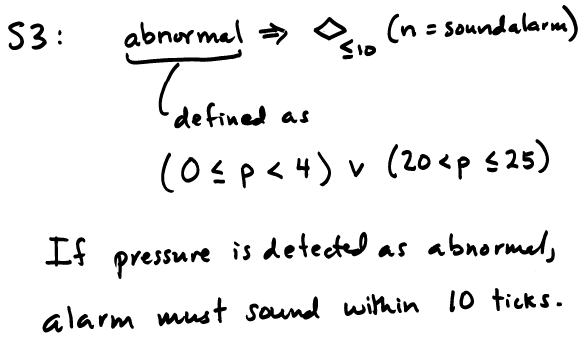 S3: abnormal ⇒ ◇≤10 (n = soundalarm)
defined as
(0 ≤ p < 4) ∨ (20 < p ≤ 25)
If pressure is detected as abnormal,
alarm must sound within 10 ticks.